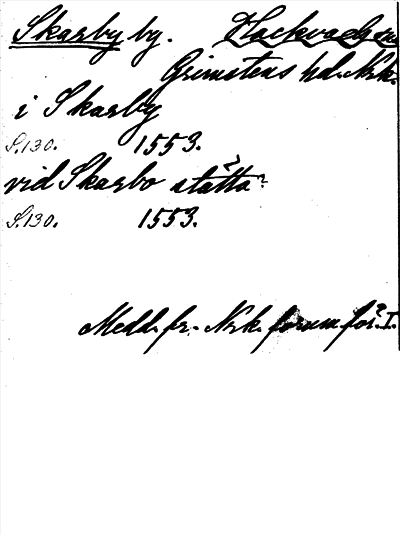 Skarby by. Hackvads sn
Grimstens hd. Nrk.
i Skarby
S.130. 1553.
vid Skarbo stätta?
S.130. 1553.
Medd. fr. Nrk. fornm för. I.